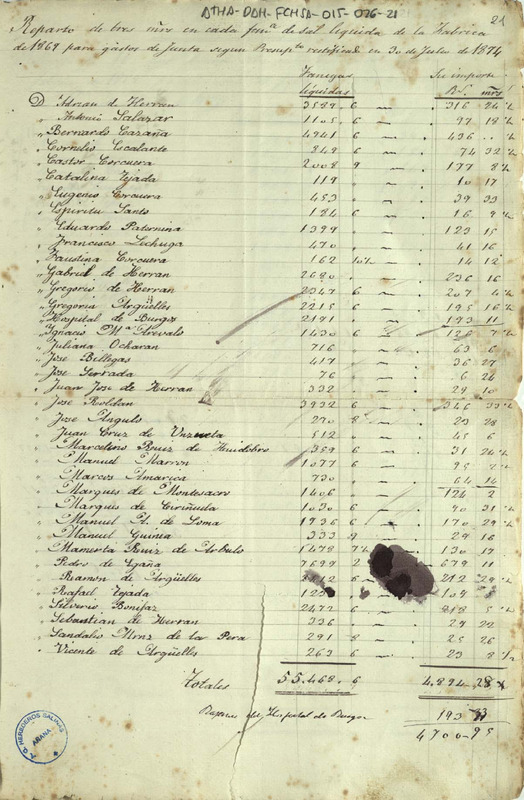 ATHA-DAH-FCHSA-015-026-21
21
Reparto de tres mrs en cada fanª de sal liquida de la Fabrica
de 1869 para gastos de Junta segun Presupto rectificado en 30 de Julio de 1874
Fanegas liquidas Su importe
Rs. mrs
Adrian de Herran 3589. 6 316 24 ½
Antonio Salazar 1105. 6 97 18 ½
Bernardo Cazaña 4941 6 436
Cornelio Escalante 849 6 74 32 ½
Castor Corcuera 2008 9 177 8 ½
Catalina Tejada 119 10 17
Eugenio Corcuera 453 39 33
Espiritu Santo 184 6 16 9 ½
Eduardo Paternina 1399 123 15
Francisco Lechuga 470 41 16
Faustina Corcuera 162 14 12
Gabriel de Herran 2680 236 16
Gregorio de Herran 2347 6 207 4 ½
Gregoria Argüelles 2215 6 195 16 ½
Hospital de Burgos 2191 193 11
Ignacio Mª Arevalo 1430 6 126 7 ½
Juliana Ocharan 716 63 6
Jose Billegas 417 36 27
Jose Serrada 76 6 24
Juan Jose de Herran 332 29 10
Jose Roldan 3932 6 346 33 ½
Jose Angulo 270 8 23 28
Juan Cruz de Unzueta 512 45 6
Marcelino Ruiz de Huidobro 359 6 31 24 ½
Manuel Marron 1077 6 95 2 ½
Marcos Amarica 730 64 14
Marques de Montesacro 1406 124 2
Marques de Ciriñuela 1030 6 90 31 ½
Manuel A. de Loma 1936 6 170 29 ½
Manuel Guinea 333 9 29 16
Mamerta Ruiz de Arbulo 1478 130 17
Pedro de Egaña 7699 2 679 11
Ramon de Argüelles 6 212 29 ½
Rafael Tejada
Silverio Bonifaz 2472 6 218 5 ½
Sebastian de Herran 336 29 22
Sandalio Mrnz de la Pera 291 8 25 26
Vicente de Argüelles 263 6 23 8 ½
Totales 55.468. 6 4.894 28
Bajense del Hospital de Burgos 193
4700-95
A. Q. HEREDEROS SALINAS
AÑANA